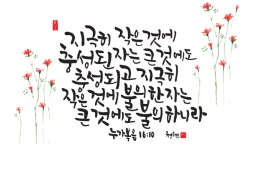 지극히 작은 것에
충성된 자는 큰 것에도
충성되고 지극히
작은 것에 불의한 자는
큰 것에도 불의하니라
누가복음 16:10